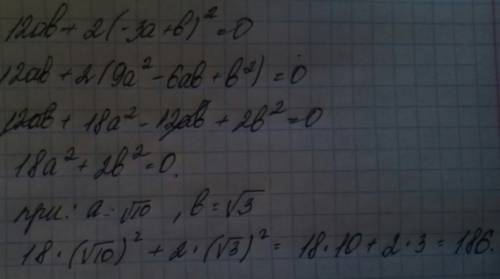 12ab + 2(-3a+b)² = 0
12ab + 2(9a² - 6ab + b²) = 0
12ab + 18a² - 12ab + 2b² = 0
18a² + 2b² = 0.
при: a = √10, b = √3
18 · (√10)² + 2 · (√3)² = 18 · 10 + 2 · 3 = 186.